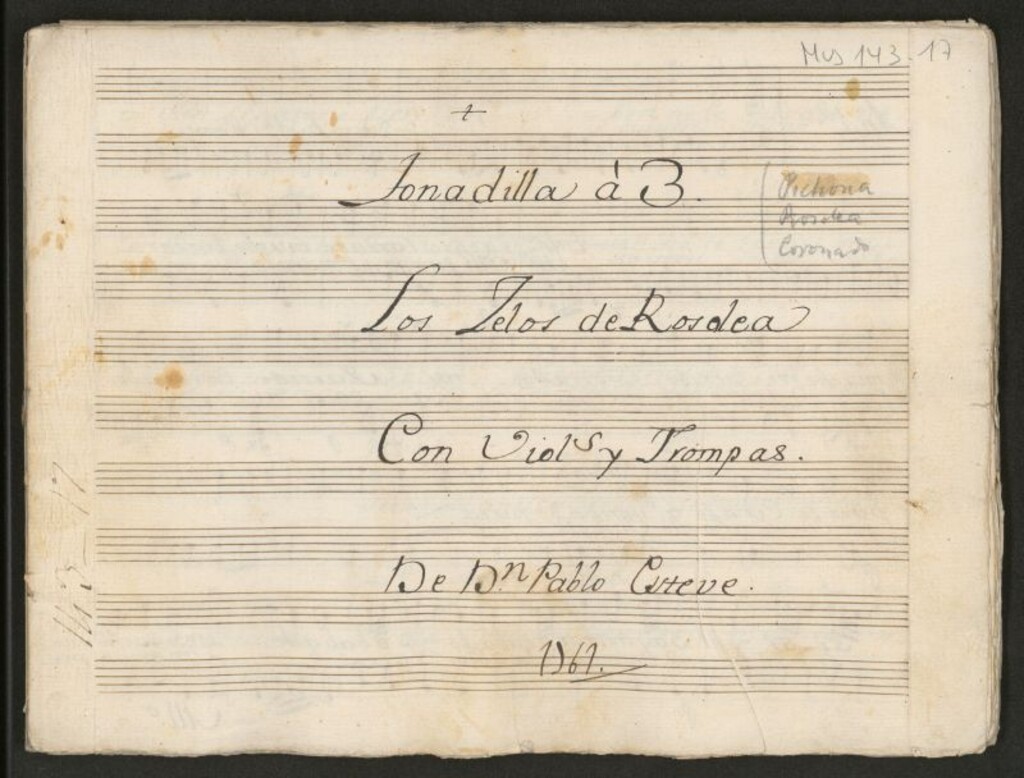 Mus 143-17
Tonadilla à 3.
Pichona
Rosdea
Coronado
Los Zelos de Rosdea
Con Viol.s y Trompas.
De D.n Pablo Esteve.
143-17